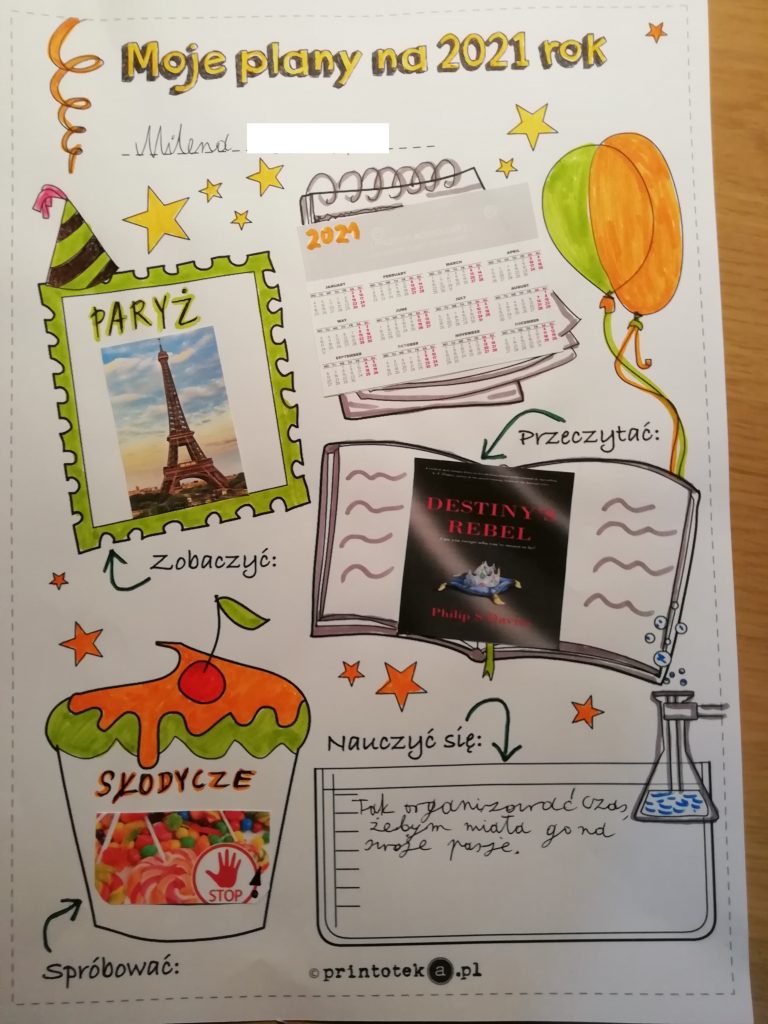 Moje plany na 2021 rok
Milena
2021
JANUARY
FEBRUARY
MARCH
APRIL
MAY
JUNE
JULY
AUGUST
SEPTEMBER
OCTOBER
NOVEMBER
DECEMBER
PARYŻ
Zobaczyć:
Przeczytać:
DESTINY'S
REBEL
Philip S Davies
Nauczyć się:
Tak organizować czas,
żebym miała go na
swoje pasje.
SŁODYCZE
STOP
!
Spróbować:
© printoteka.pl